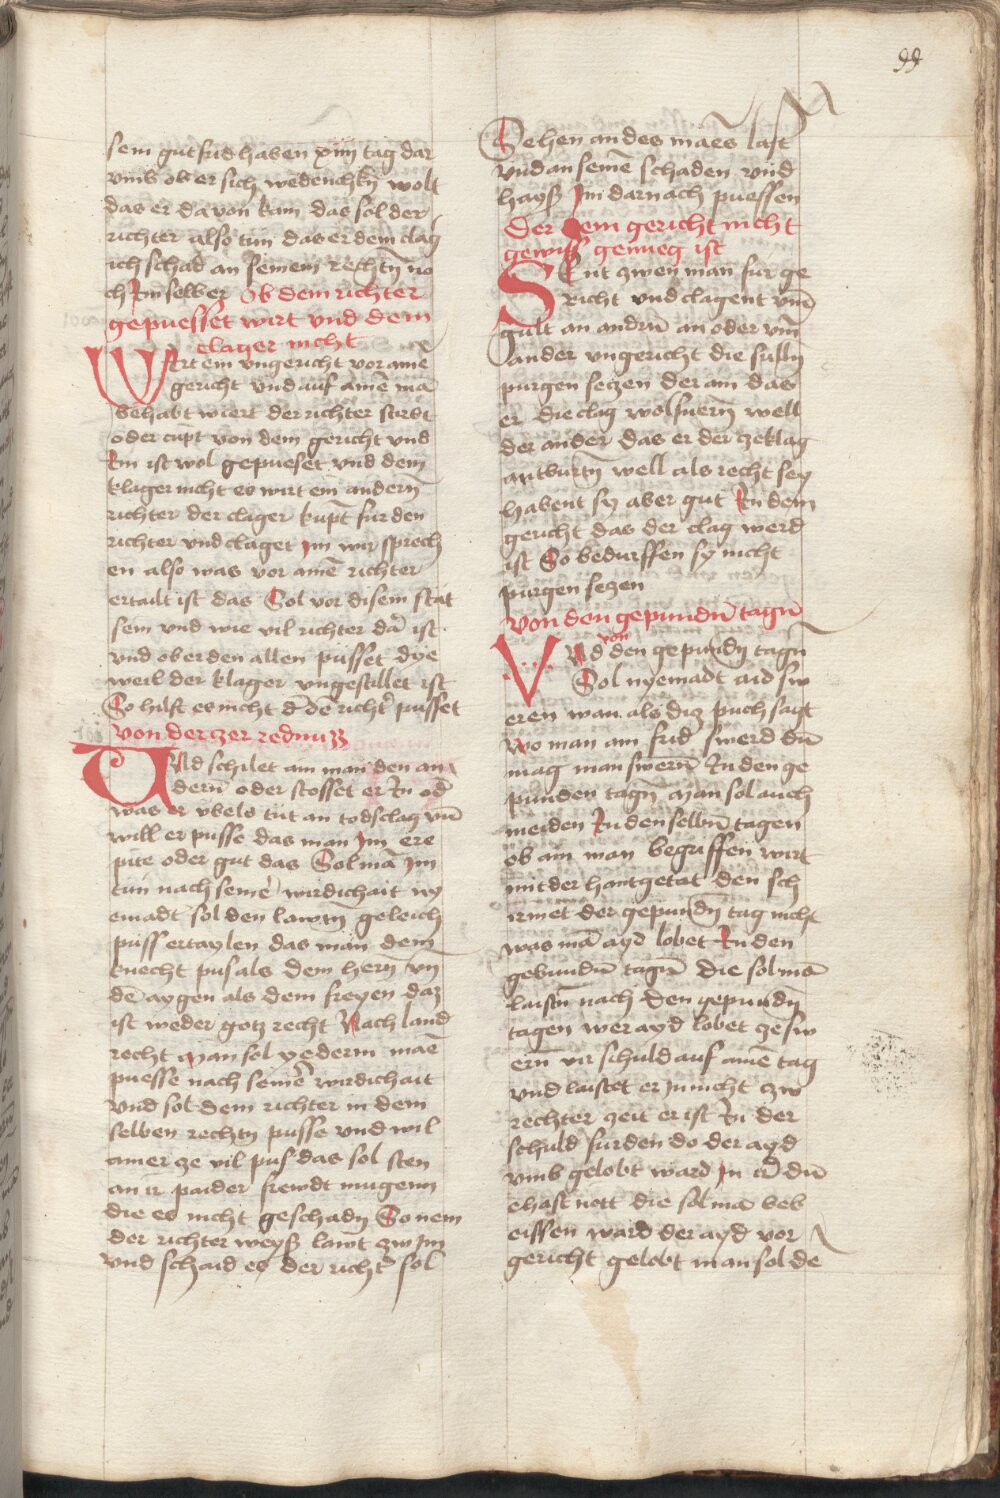 99
sein gut frid haben xiiij tag dar
vmb ob er sich wedenchkn̄ wolt
das er da von kam das sol der
richter also tun das er dem clag
ich schad an seinem rechtn̄ no
ch Im selber Ob dem richter
gepuesset wirt vnd dem
clager nicht
Wirt ein vngericht vor aine
gericht vnd auf aine̅ ma̅
behabt wiert der richter stirbt
oder cu̅pt von dem gericht vnd
Im ist wol gepueset vnd dem
klager nicht es wirt ein andern̄
richter der clager kupt fur den
richter vnd claget im wir sprech
en also was vor aine̅ richter
ertailt ist das Sol vor disem stat
sein vnd wie vil richter da̅ ist
vnd ob er den allen pusset dye
weil der klager vngestillet ist
So hilft es nicht d̅ de̅ richt̅ pusset
von der zer rednuzz
Vnd schilet ain man den an
dern̄ oder stosset er In od̅
was er vbels tut an todslag vn̅
will er pusse das man Im ere
pite oder gut das Sol ma̅ Im
tun nach seine̅ wirdichait ny
emadt sol den lawtn̄ geleich
puss ertaylen das man dem
knecht pus als dem hern̄ vn̄
de̅ aygen als dem freyen daz
ist weder gotz recht Nach land
recht Man sol yederm mae̅
puesse nach seine̅ wirdichait
vnd sol dem richter in dem
selben rechtn̄ pusse vnd wil
ainer ze vil pus das sol sten
an ir paider frewdt mugenn
die es nicht geschadn̄ So nem
der richter weyß lawt zw im
vnd schaid es der richt̅ sol
Sehen an des mae̅s laſt
vnd an seine̅ schaden vnd
hayß Im darnach puessen
Der dem gericht nicht
gewiss genueg ist
Sent zwen man fur ge
richt vnd clagent vm̅
gult an andrn̄ an oder vm̅
ander vngericht die sulln̄
purgen seczen der ain das
er die clag wolfuern̄ well
der ander das er der zeklag
antburtn̄ well als recht sey
habent sy aber gut In dem
gericht das der clag werd
ist So bedurffen sy nicht
purgen seczen
Von den gepundn̄ tagn̄
Vnd von den gepundn̄ tagn̄
Sol nyemadt aid sw
eren wan als diz puch sagt
wo man ain frid swerd dn̄
mag man swern̄ In den ge
punden tagn̄ Man sol auch
meiden In den selbn̄ tagen
ob ain man begriffen wirt
mit der hantgetat den sch
irmet der gepundn̄ tag nicht
was ma̅ ayd lobet In den
gebundn̄ tagn̄ die sol ma̅
laistn̄ nach den gepundn̄
tagen wer ayd lobet ze sw
ern̄ vir schuld auf aine̅ tag
vnd laistet er in nicht zw
rechter zeit er ist In der
schuld furden do der ayd
vmb gelobt ward In ir̅ dn̄
ehaft nott die sol ma̅ beb
eissen ward der ayd vor
gericht gelobt man sol de